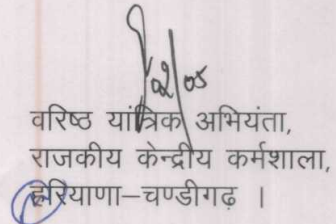 02/05
वरिष्ठ यांत्रिक अभियंता,
राजकीय केन्द्रीय कर्मशाला,
हरियाणा–चण्डीगढ़ ।